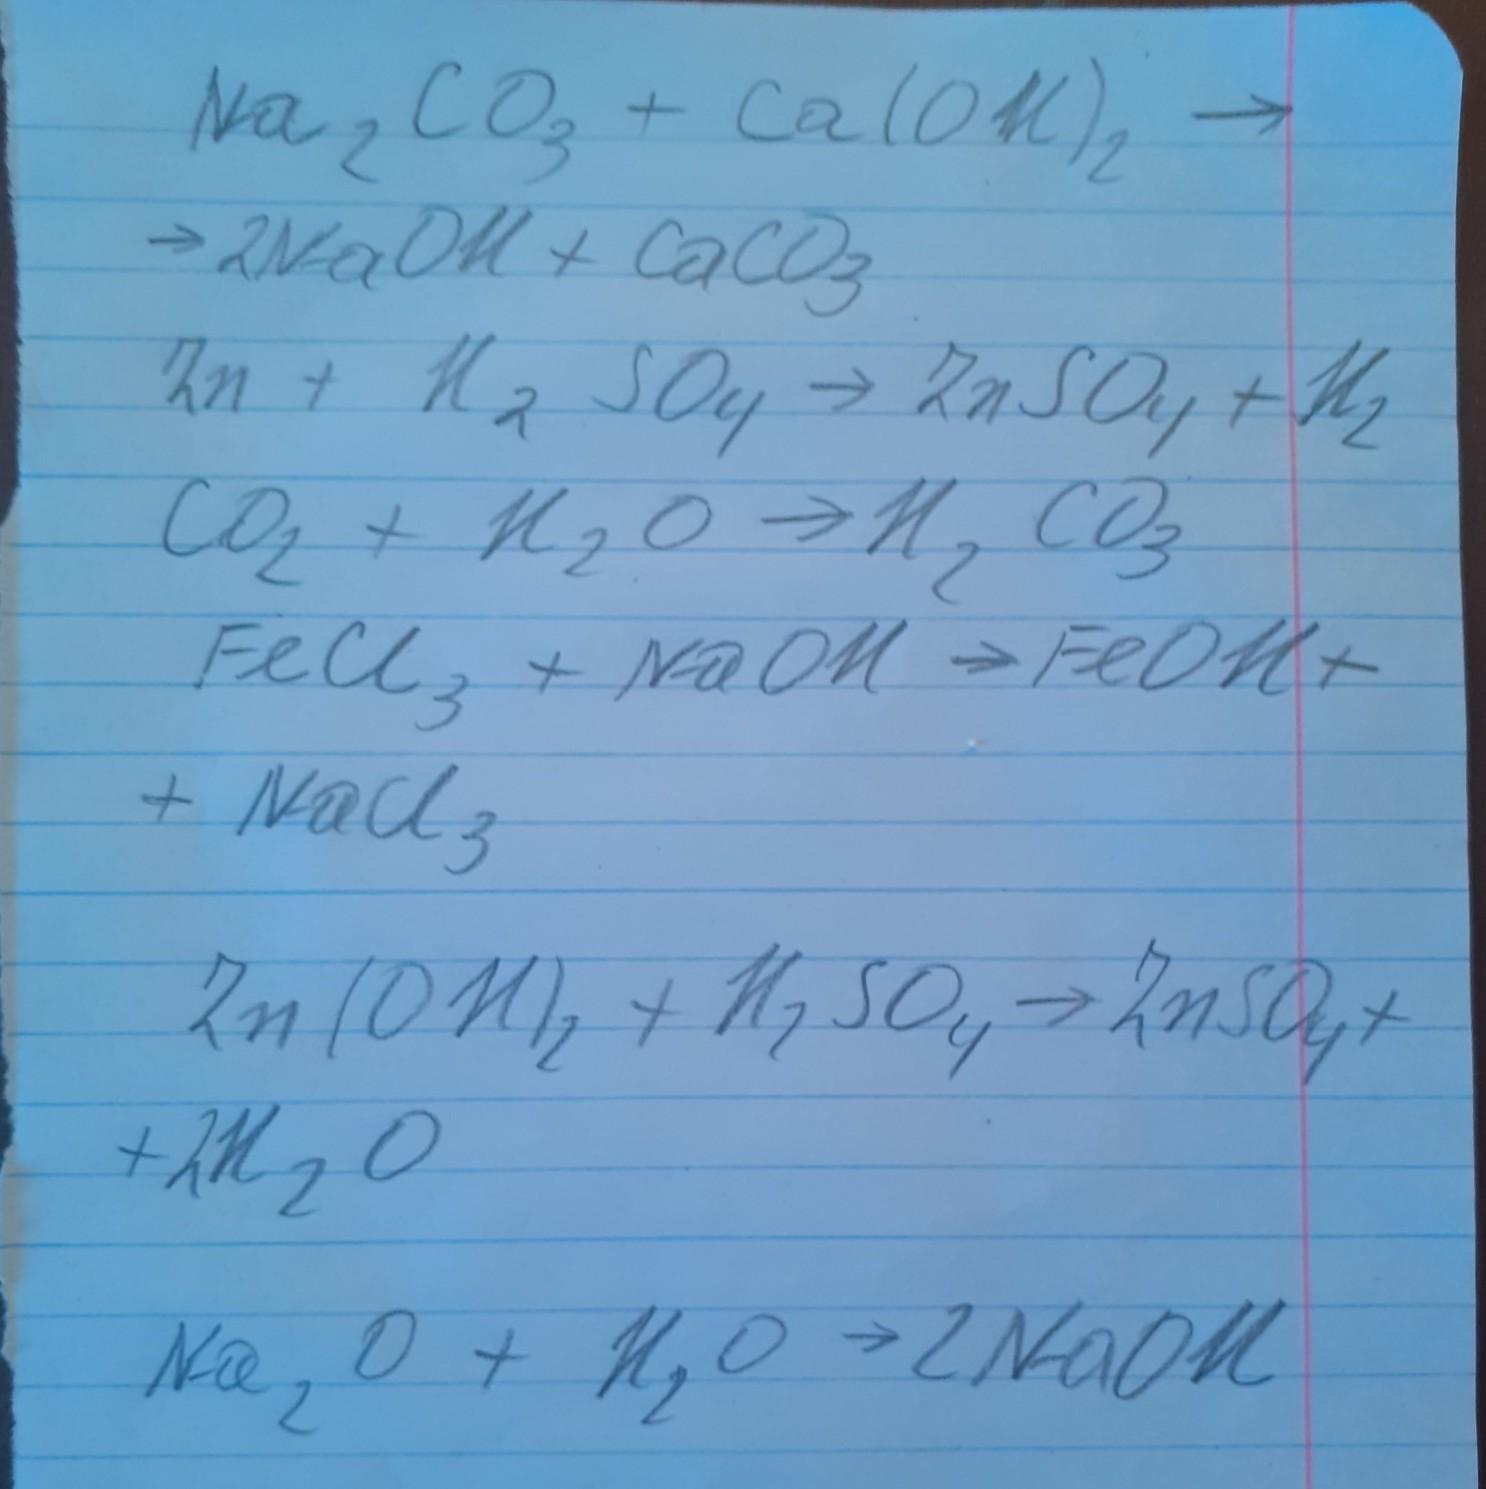 Na₂CO₃ + Ca(OH)₂ →
→ 2NaOH + CaCO₃
Zn + H₂SO₄ → ZnSO₄ + H₂
CO₂ + H₂O → H₂CO₃
FeCl₃ + NaOH → FeOH +
+ NaCl₃
Zn(OH)₂ + H₂SO₄ → ZnSO₄ +
+ 2H₂O
Na₂O + H₂O → 2NaOH